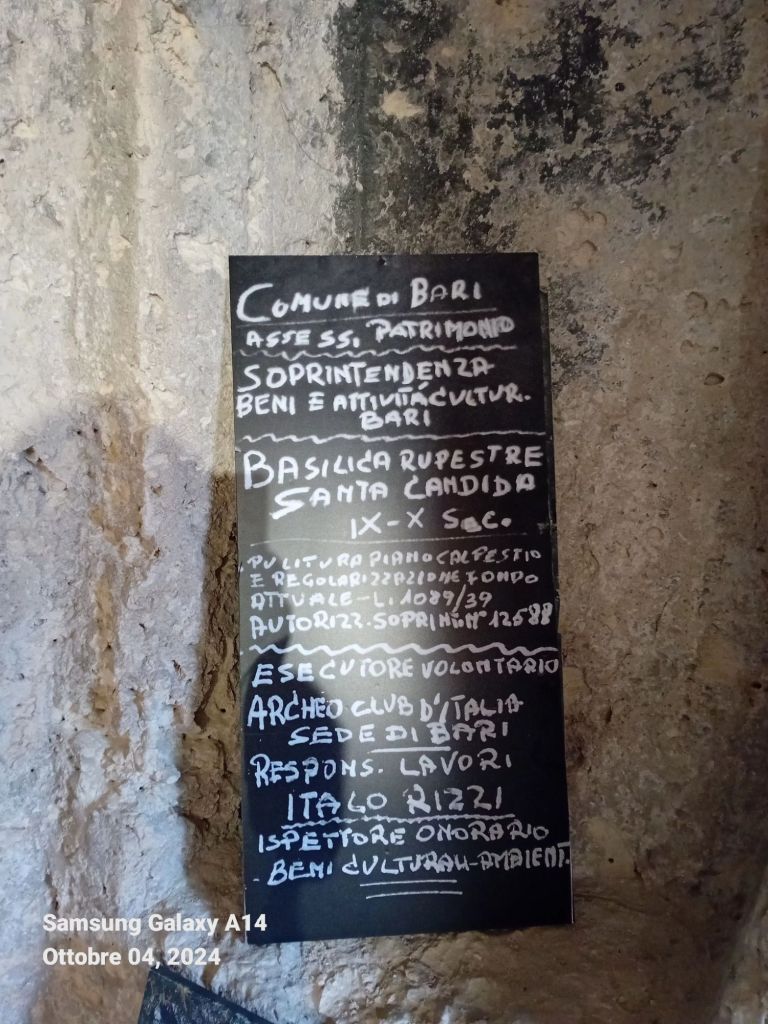 COMUNE DI BARI
ASSESS. PATRIMONIO
SOPRINTENDENZA
BENI E ATTIVITÁ CULTUR.
BARI
BASILICA RUPESTRE
SANTA CANDIDA
IX-X SEC.
PULITURA PIANO CALPESTIO
E REGOLARIZZAZIONE FONDO
ATTUALE-L. 1089/39
AUTORIZZ. SOPRINT. N° 12588
ESECUTORE VOLONTARIO
ARCHEO CLUB D'ITALIA
SEDE DI BARI
RESPONS. LAVORI
ITALO RIZZI
ISPETTORE ONORARIO
BENI CULTURALI-AMBIENT.
Samsung Galaxy A14
Ottobre 04, 2024